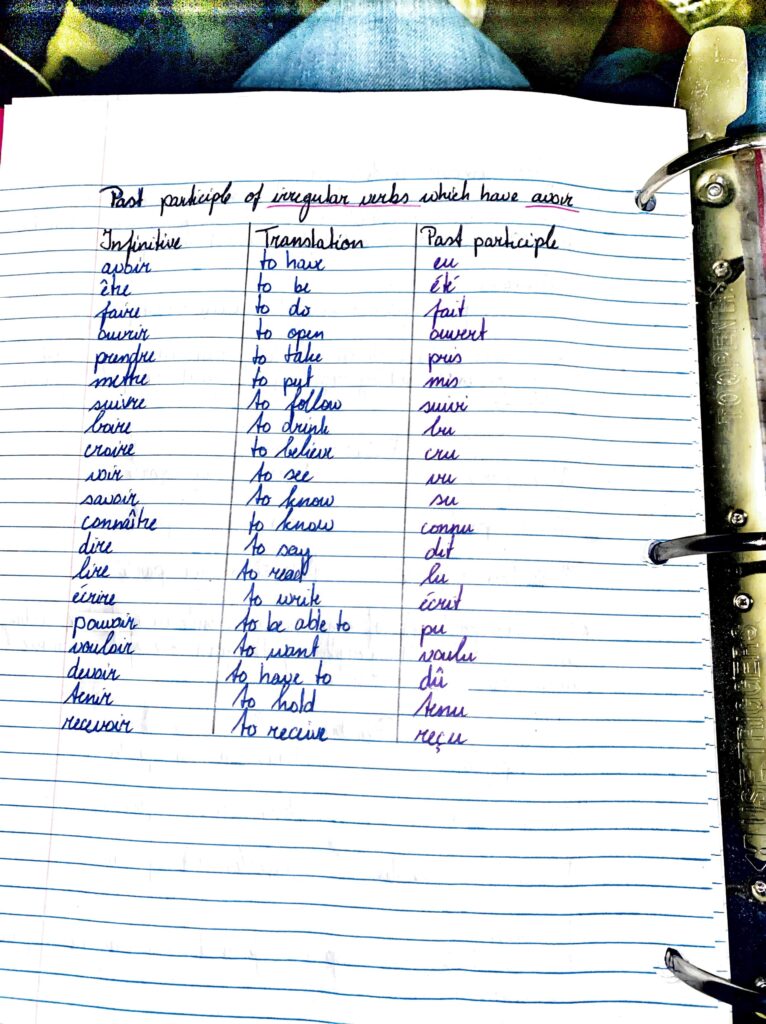 Past participle of irregular verbs which have avoir
Infinitive Translation Past participle
avoir to have eu
être to be été
faire to do fait
ouvrir to open ouvert
prendre to take pris
mettre to put mis
suivre to follow suivi
boire to drink bu
croire to believe cru
voir to see vu
savoir to know su
connaître to know connu
dire to say dit
lire to read lu
écrire to write écrit
pouvoir to be able to pu
vouloir to want voulu
devoir to have to dû
tenir to hold tenu
recevoir to receive reçu